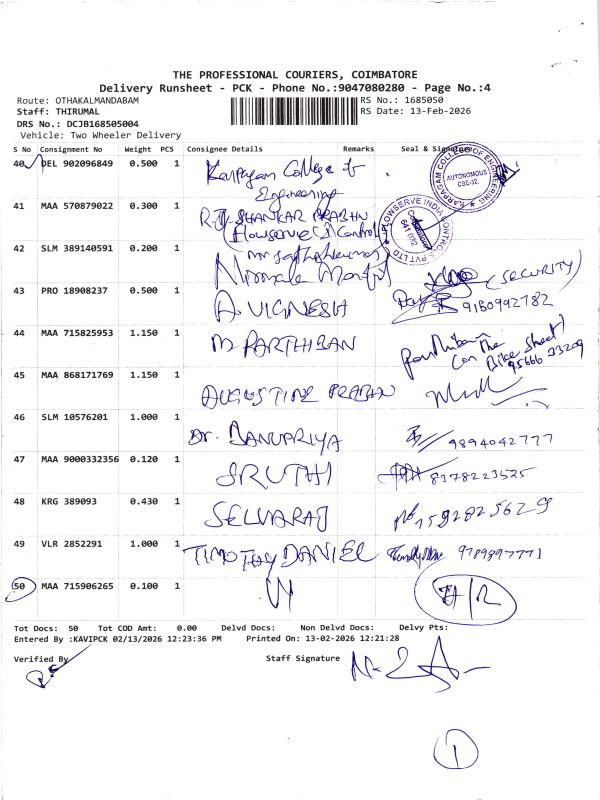 THE PROFESSIONAL COURIERS, COIMBATORE
Delivery Runsheet - PCK - Phone No.:9047080280 - Page No.:4
Route: OTHAKALMANDABAM RS No.: 1685050
Staff: THIRUMAL RS Date: 13-Feb-2026
DRS No.: DCJB168505004
Vehicle: Two Wheeler Delivery
S No Consignment No Weight PCS Consignee Details Remarks Seal & Signature
40 DEL 902096849 0.500 1 Karpagam College of
Engineering
KARPAGAM COLLEGE OF ENGINEERING AUTONOMOUS CBE-32.
41 MAA 570879022 0.300 1 SHANKAR PRABHU
Flowserve Control
FLOWSERVE INDIA CONTROLS PVT LTD Coimbatore 641 032
42 SLM 389140591 0.200 1 Nirmala
(SECURITY)
43 PRO 18908237 0.500 1 A. VIGNESH 9180992782
44 MAA 715825953 1.150 1 M PARTHIBAN Parthiban
Bike Sheet)
95666 33209
45 MAA 868171769 1.150 1 AUGUSTINE PRABHU
46 SLM 10576201 1.000 1 Dr. BANUPRIYA 9894042777
47 MAA 9000332356 0.120 1 SRUTHI 8178223525
48 KRG 389093 0.430 1 SELVARAJ 7592825629
49 VLR 2852291 1.000 1 TIMOTHY DANIEL 9789397771
50 MAA 715906265 0.100 1 H/R
Tot Docs: 50 Tot COD Amt: 0.00 Delvd Docs: Non Delvd Docs: Delvy Pts:
Entered By :KAVIPCK 02/13/2026 12:23:36 PM Printed On: 13-02-2026 12:21:28
Verified By Staff Signature
1